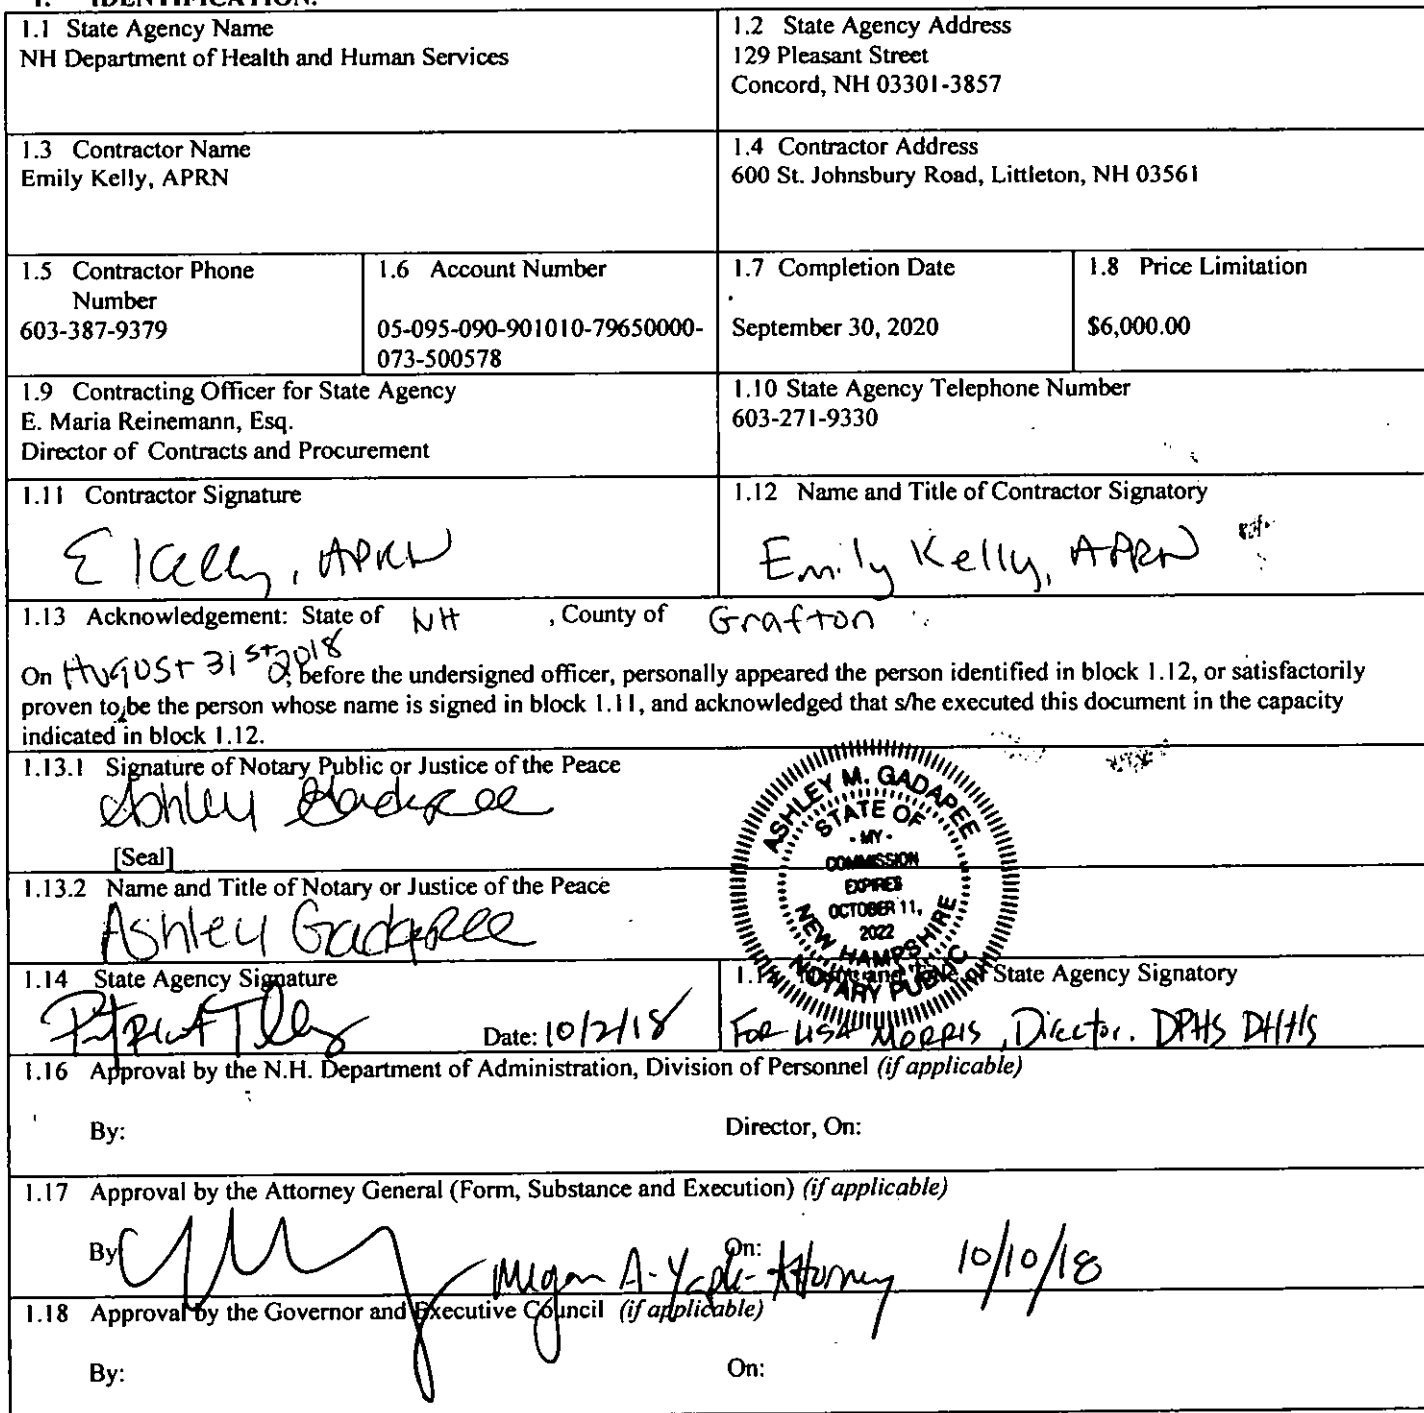 1. IDENTIFICATION.
1.1 State Agency Name
NH Department of Health and Human Services
1.2 State Agency Address
129 Pleasant Street
Concord, NH 03301-3857
1.3 Contractor Name
Emily Kelly, APRN
1.4 Contractor Address
600 St. Johnsbury Road, Littleton, NH 03561
1.5 Contractor Phone
Number
603-387-9379
1.6 Account Number
05-095-090-901010-79650000-
073-500578
1.7 Completion Date
September 30, 2020
1.8 Price Limitation
$6,000.00
1.9 Contracting Officer for State Agency
E. Maria Reinemann, Esq.
Director of Contracts and Procurement
1.10 State Agency Telephone Number
603-271-9330
1.11 Contractor Signature
E Kelly, APRN
1.12 Name and Title of Contractor Signatory
Emily Kelly, APRN
1.13 Acknowledgement: State of NH , County of Grafton
On August 31st 2018, before the undersigned officer, personally appeared the person identified in block 1.12, or satisfactorily
proven to be the person whose name is signed in block 1.11, and acknowledged that s/he executed this document in the capacity
indicated in block 1.12.
1.13.1 Signature of Notary Public or Justice of the Peace
Ashley Gadapee
[Seal]
ASHLEY M. GADAPEE
STATE OF
- MY -
COMMISSION
EXPIRES
OCTOBER 11,
2022
NEW HAMPSHIRE
NOTARY PUBLIC
1.13.2 Name and Title of Notary or Justice of the Peace
Ashley Gadapee
1.14 State Agency Signature
Date: 10/2/18
State Agency Signatory
For LISA MORRIS, Director. DPHS DHHS
1.16 Approval by the N.H. Department of Administration, Division of Personnel (if applicable)
By:
Director, On:
1.17 Approval by the Attorney General (Form, Substance and Execution) (if applicable)
By:
On:
Megan A. Attorney 10/10/18
1.18 Approval by the Governor and Executive Council (if applicable)
By:
On: